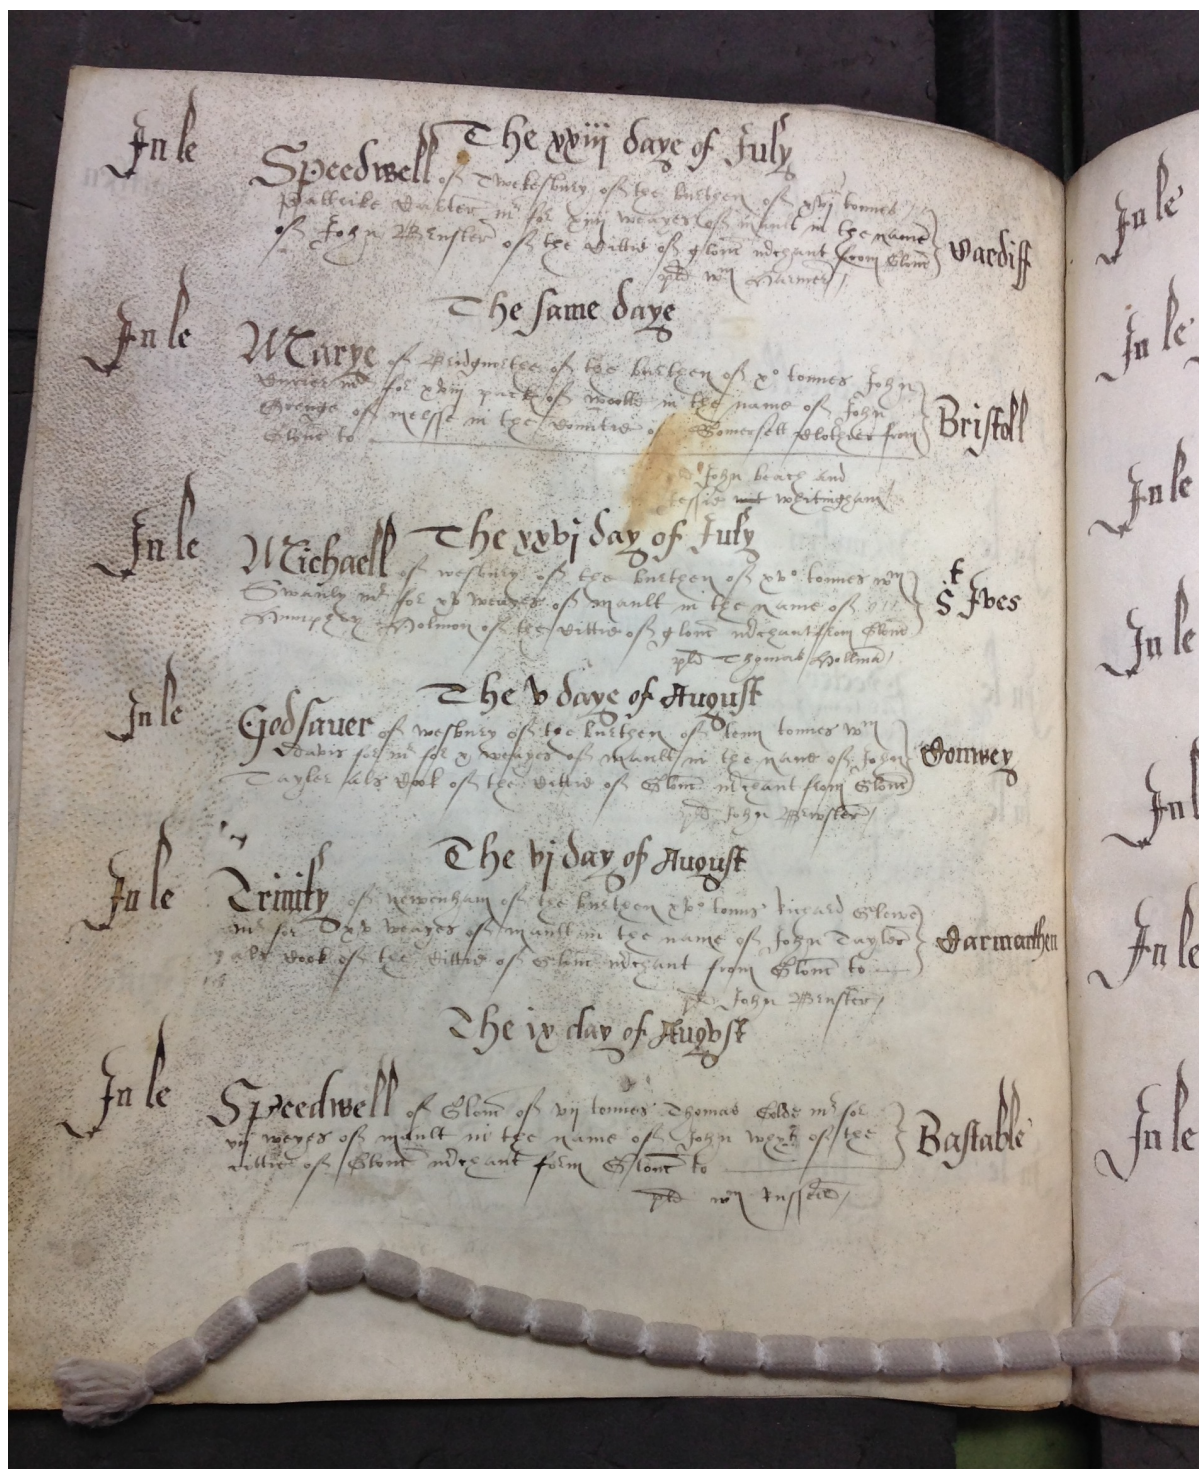 The xxiij daye of July
In le Speedwell of Twekesbury of the burthen of xvj tonnes
Pattrike mr for xiiij weayes of mault in the name
of John Brewster of the Cittie of glouc mrchant from Glouc Cardiff
pld wm Harmer
The same daye
In le Marye of Bridgnorthe of the burthen of xo tonnes John
mr for xviij pack of woolle in the name of John
of in the Countie of Somersett Clothier from Bristoll
Glouc to
John beach and
whitingham
The xxvj day of July
In le Michaell of wesbury of the burthen of xvo tonnes wm
Swanly mr for xv weayes of mault in the name of St Ives
Humphry Holman of the Cittie of glouc mrchant from Glouc
pld Thomas Hollman
The v daye of August
In le Godsaver of wesbury of the burthen of tenn tonnes wm
Davis mr for x weayes of mault in the name of John Conwey
Taylor als Cook of the Cittie of Glouc mrchant from Glouc
pld John Brewster
The vj day of August
In le Trinity of newenham of the burthen xvo tonns Richard
mr for xv weayes of mault in the name of John Taylor Carmarthen
als Cook of the Cittie of Glouc mrchant from Glouc to
pld John Brewster
The ix day of August
In le Speedwell of Glouc of vij tonnes Thomas Colde mr for
vij weyes of mault in the name of John of the Bastable
Cittie of Glouc mrchant form Glouc to
pld wm Russell
In le
In le
In le
In le
In le
In le
In le